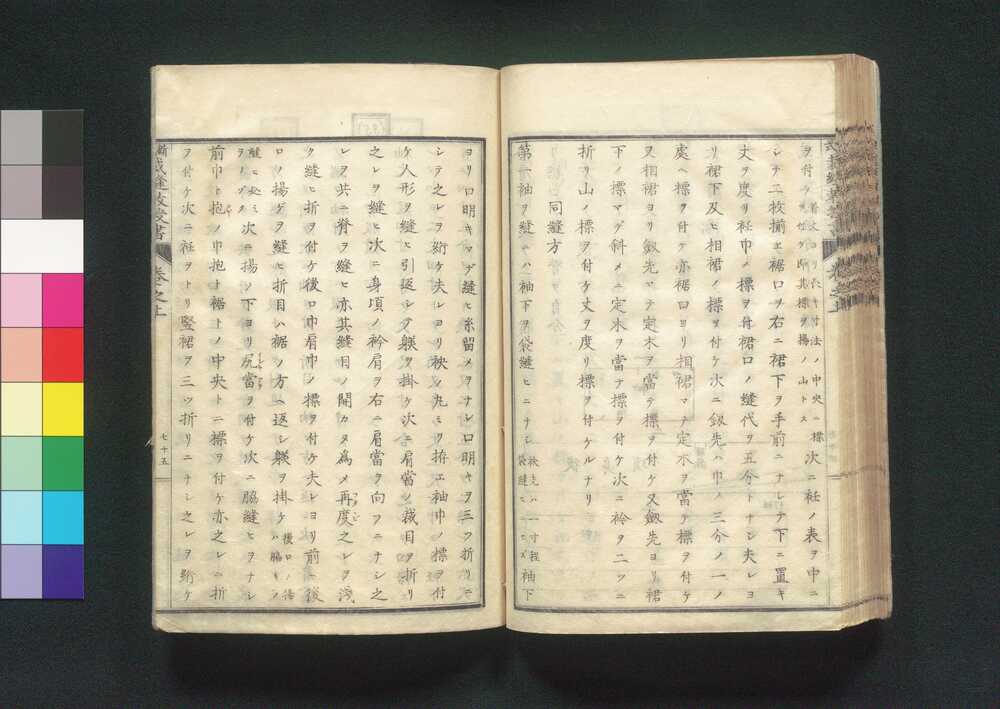 ヲ付ケ
シテ二枚揃エ裾口ヲ右ニ裾下ヲ手前ニナシテ下ニ置キ
丈ヲ度リ衽巾ノ標ヲ付裾口ノ縫代ヲ五分トナシ夫レヨ
リ裾下及ヒ相裾ノ標ヲ付ケ次ニ剱先ハ巾ノ三分ノ一ノ
處ヘ標ヲ付ケ亦裾口ヨリ相裾マテ定木ヲ當テ標ヲ付ケ
又相裾ヨリ剱先マテ定木ヲ當テ標ヲ付ケ又剱先ヨリ裾
下ノ標マデ斜メニ定木ヲ當テ標ヲ付ケ次ニ衿ヲ二ツニ
折リ山ノ標ヲ付ケ丈ヲ度リ標ヲ付ケルナリ
同縫方
第一袖ヲ縫ハ袖下ヲ袋縫ヒニナシ 袖下
ヨリ口明キマデ縫ヒ糸留メヲナシ口明キヲ三ツ折リニ
シテ之レヲ絎ケ夫レヨリ袂ノ丸ミヲ拵エ袖巾ノ標ヲ付
ケ人形ヲ縫ヒ引返シテ躾ヲ掛ケ次ニ肩當ノ裁目ヲ折リ
之レヲ縫ヒ次ニ身頃ノ衿肩ヲ右ニ肩當ヲ向フニナシ之
レヲ共ニ脊ヲ縫ヒ亦其縫目ノ開カヌ為メ再度之レヲ浅
ク縫ヒ折ヲ付ケ後口巾肩巾ノ標ヲ付ケ夫レヨリ前ニ後
ロノ揚ゲヲ縫ヒ折目ハ裾ノ方ヘ返シ躾ヲ掛ケ
次ニ揚ノ下ヨリ尻當ヲ付ケ次ニ脇縫ヒヲナシ
前巾ト抱ノ巾抱ト裾トノ中央トニ標ヲ付ケ亦之レニ折
ヲ付ケ次ニ衽ヲトリ竪裾ヲ三ツ折リニナシ之レヲ絎ケ
裁縫教授書 巻之上
七十五